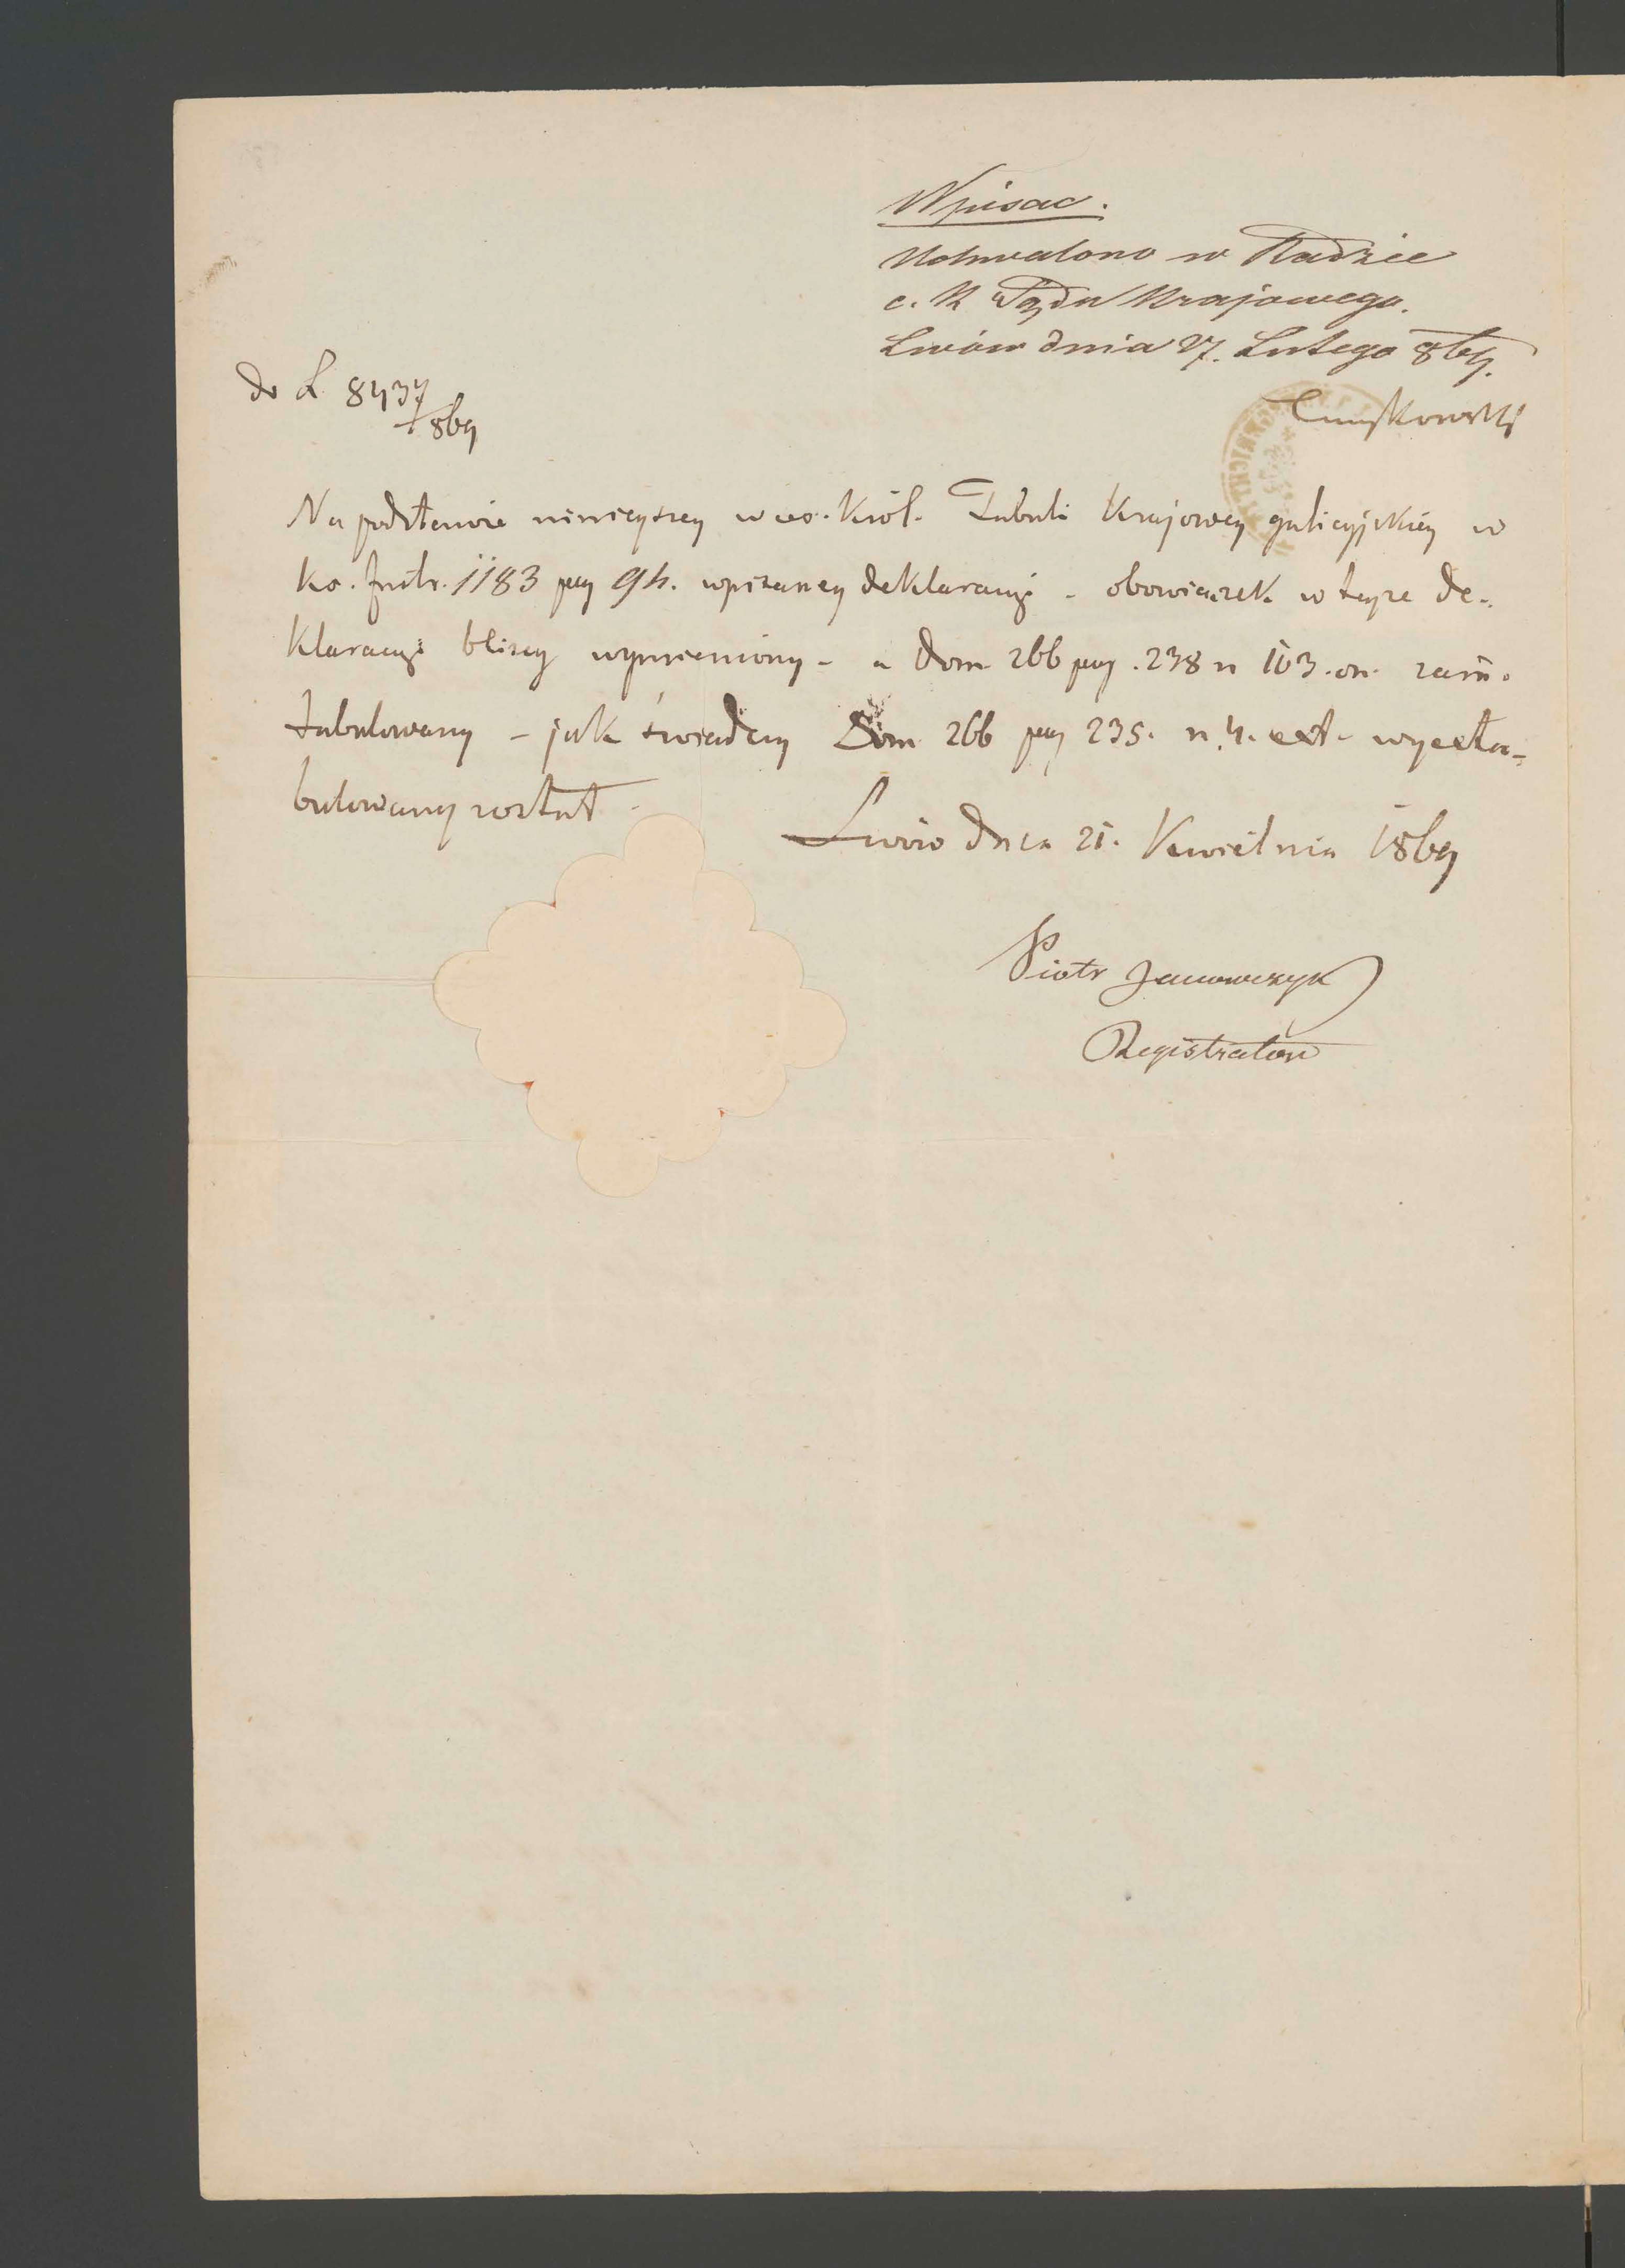 Wpisać.
Uchwalono w Radzie
c. k Sądu Krajowego.
Lwów dnia 27. Lutego 869.
do L 8437
/869
Na podstawie niniejszey w ces. Król. Tabuli Krajowey galicyjskiey w
Ks. Instr. 1183 pag 94. wpisaney deklaracyi - obowiązek w teyże de-
klaracyi bliżey wymieniony - a Dom 266 pag. 238 n 103. on. zain-
tabulowany - jak świadczy Dom 266 pag 235. n. 4. ext. wyexta-
bulowany został -
Lwów dnia 21. Kwietnia 1869
Piotr Janowczyk
Registrator